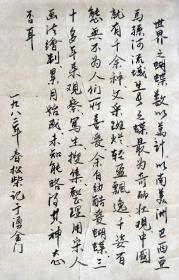 世界之蝴蝶数以万计以南美洲巴西亚
马孙河流域生息之蝶最为奇丽壮观中国
就有千余种文采斑烂轻盈飘逸千姿百
态无不为人们所喜爱余自幼酷爱蝴蝶三
十多年来观察写生搜集整理用举人
画法绘制累月始成未知能略得其神态
否耳
一九八二年春松柴记于涌金门